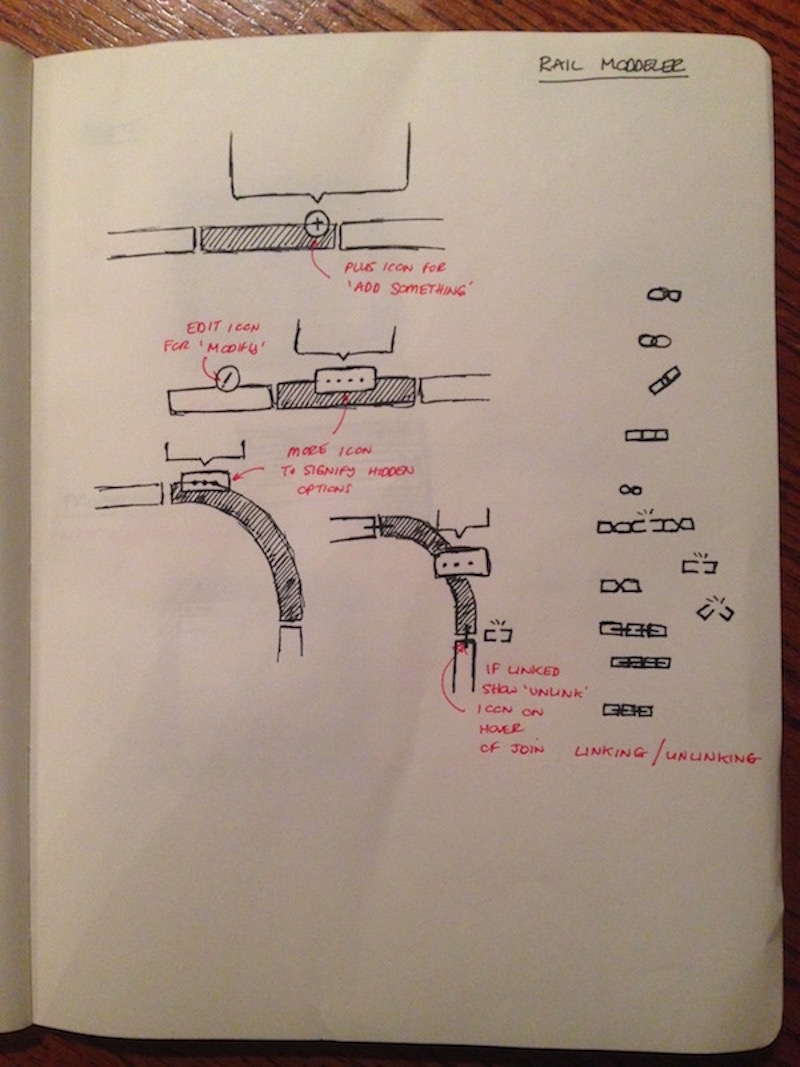 RAIL MODDELER
PLUS ICON FOR
'ADD SOMETHING'
EDIT ICON
FOR 'MODIFY'
MORE ICON
TO SIGNIFY HIDDEN
OPTIONS
IF LINKED
SHOW 'UNLINK'
ICON ON
HOVER
OF JOIN
LINKING/UNLINKING